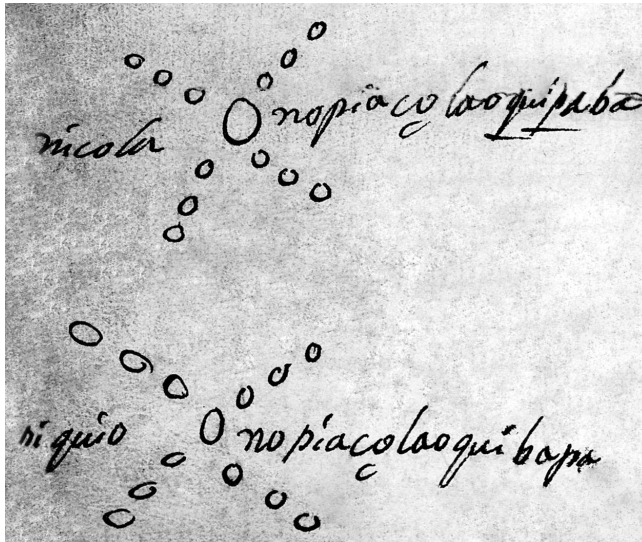 nicola nopiaçolaoquipaba
niquio nopiaçolaoquibapa